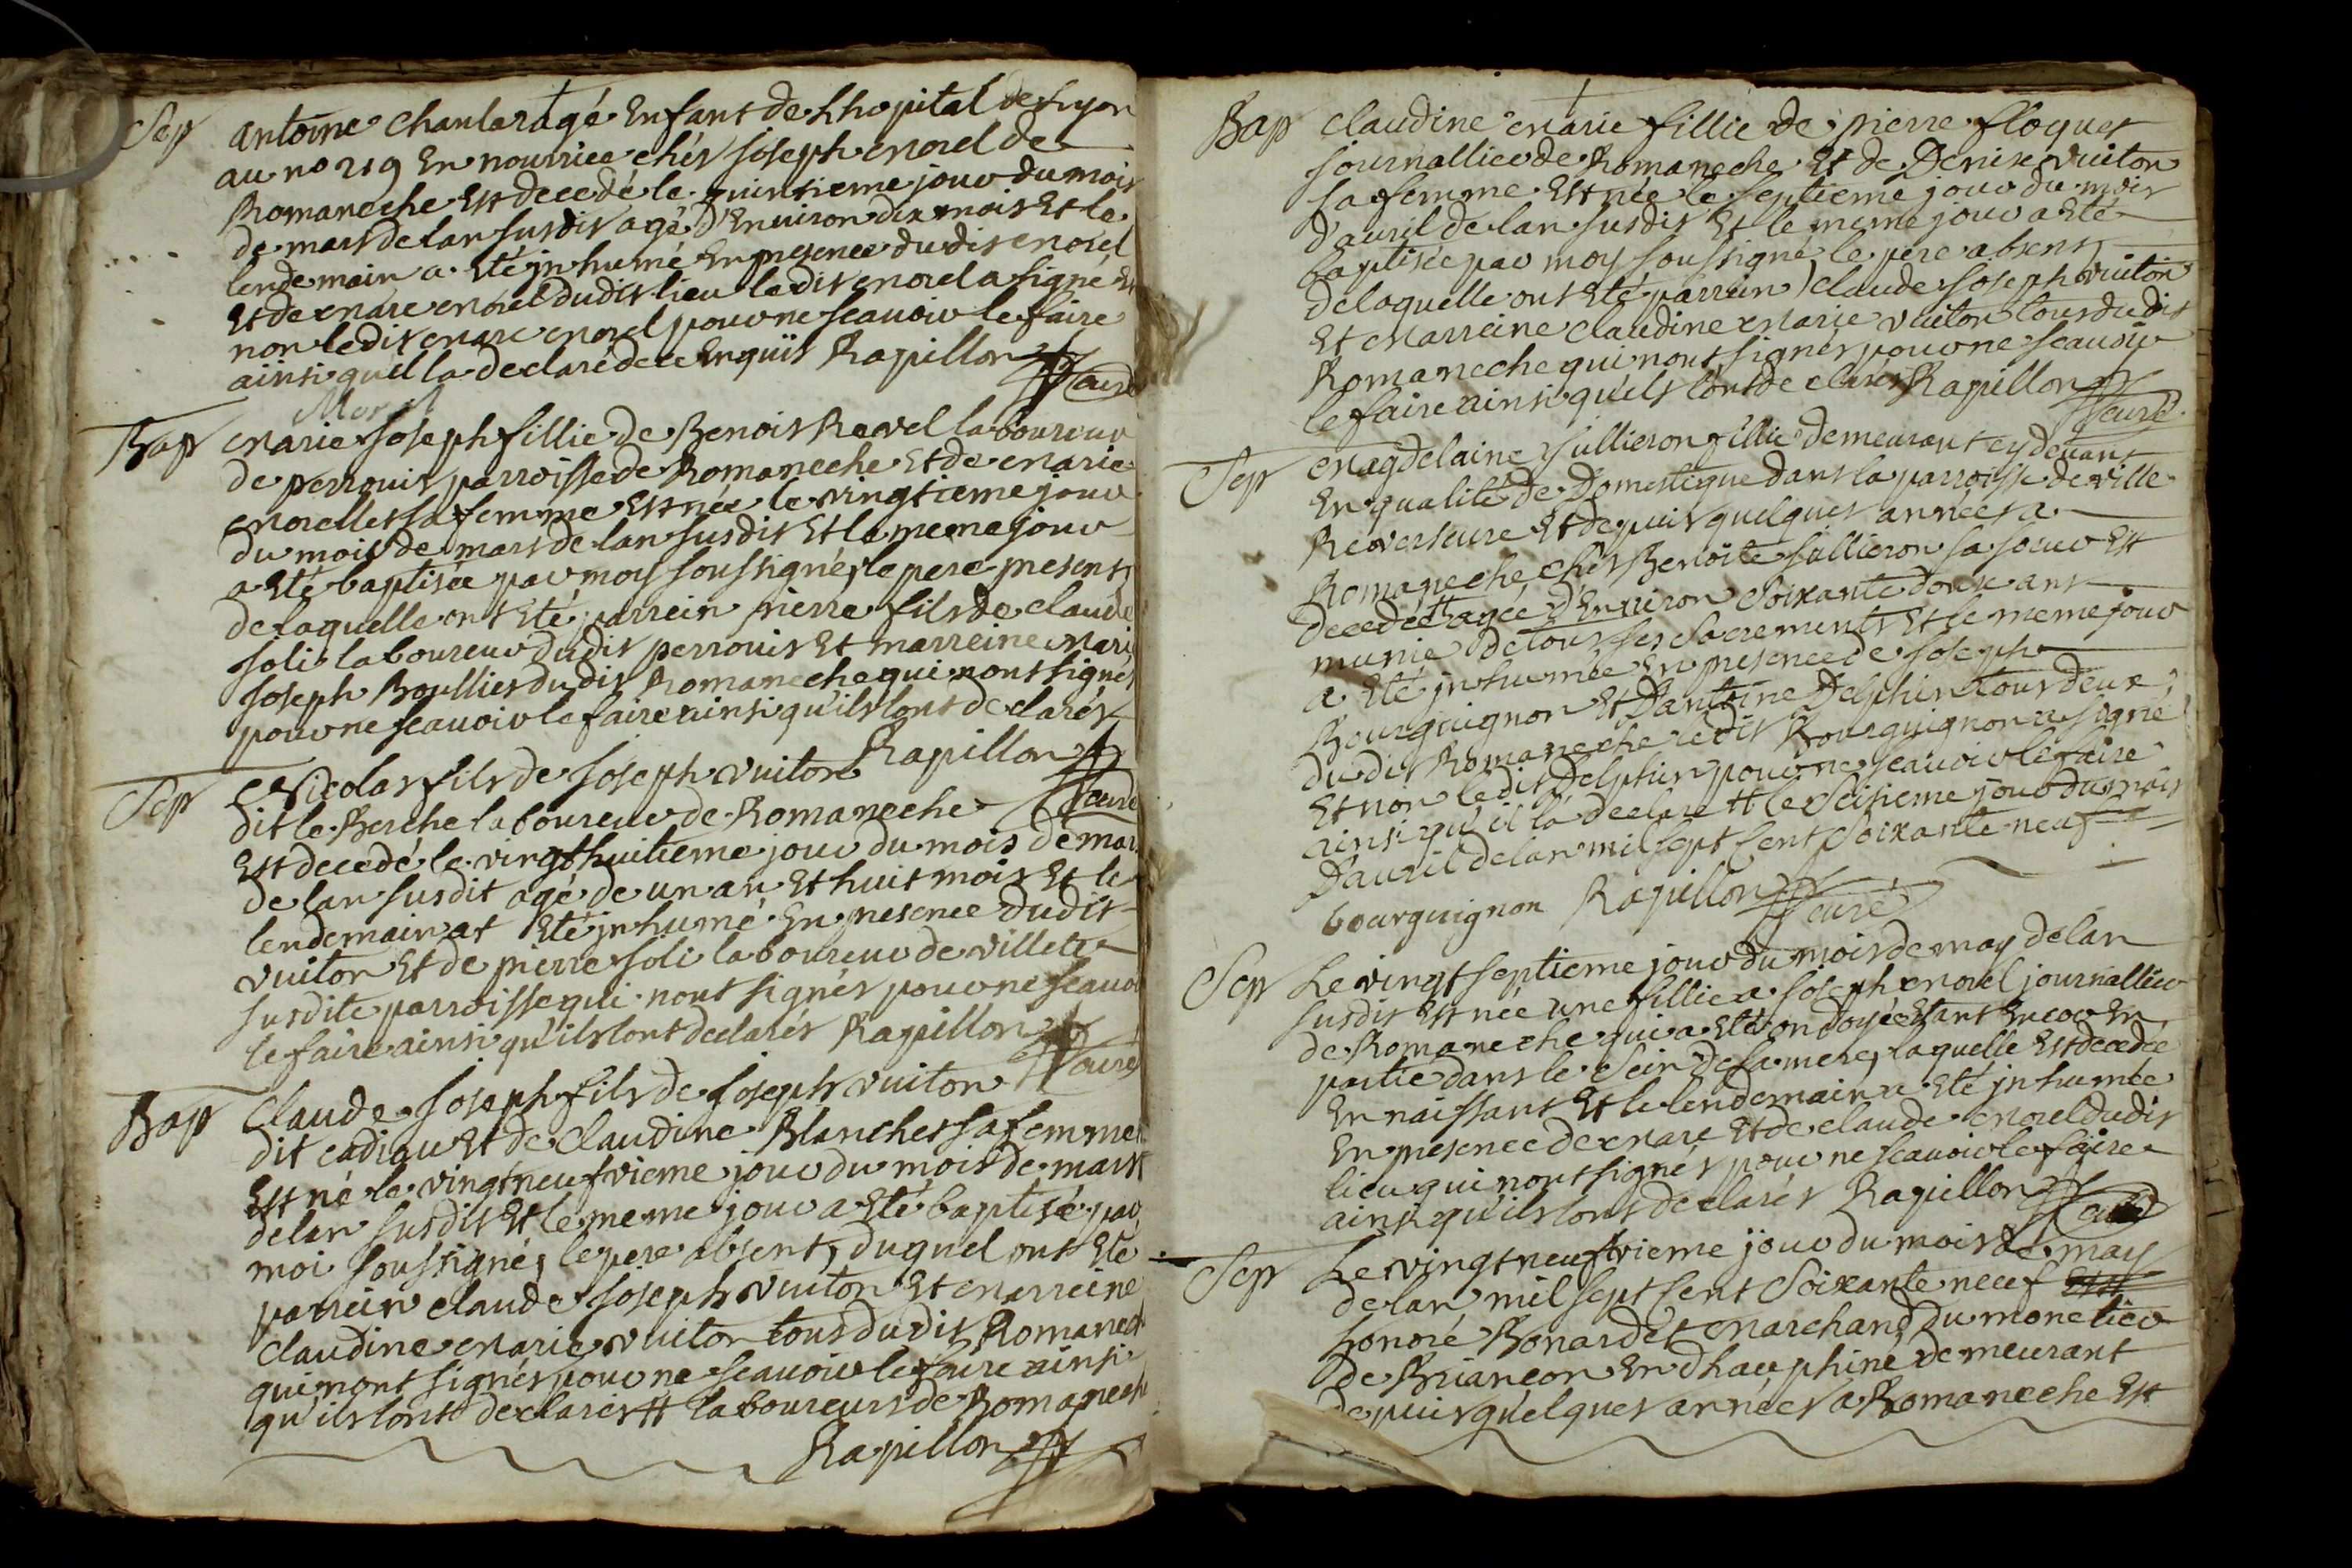 Sep antoine chanlaragé Enfant de Lhopital de Lyon
au no 219 En nourrice chés Joseph morel de
Romaneche Est decedé le quinsieme jour du mois
de mars de lan susdit agé d'Environ dix mois Et le
lendemain a Eté jnhumé En presence dudit morel
Et de marc morel dudit lieu ledit morel a signé Et
non ledit marc morel pour ne scauoir le faire
ainsi quil la declaré de ce Enquis Rapillon
curé
Morel
Bap marie Joseph fillie de Benoit Revel laboureur
de perrouis parroisse de Romaneche Et de marie
morellet sa femme Est née le vingtieme jour
du mois de mars de lan susdit Et le meme jour
a Eté baptisée par moy soussigné, le pere present,
de laquelle ont Eté parrein pierre fils de claude
joli laboureur dudit perrouis Et marreine marie
Joseph Boullier dudit Romaneche qui nont signés
pour ne scauoir le faire ainsi qu'ils lont declarés
Rapillon
curé
Sep Nicolas fils de Joseph vuiton
dit le Berche laboureur de Romaneche
Est decedé le vingt huitieme jour du mois de mar
de lan susdit agé de un an Et huit mois Et le
lendemain at Eté jnhumé En presence dudit
vuiton Et de pierre joli laboureur de villete
susdite parroisse qui nont signés pour ne scauoi
le faire ainsi qu'ils lont declarés Rapillon
curé
Bap Claude Joseph fils de Joseph vuiton
dit cadiau Et de claudine Blanchet sa femme
Est né le vingt neufvieme jour du mois de mars
de lan susdit Et le meme jour a Eté baptisé par
moi soussigné, le pere absent, duquel ont Eté
parrein claude Joseph vuiton Et marreine
claudine marie vuiton tous dudit Romanech
qui nont signés pour ne scauoir le faire ainsi
qu'ils lont declarés # laboureurs de Romanech
Rapillon
Bap claudine marie fillie de pierre floquet
journallier de Romaneche Et de Denise vuiton
sa femme Est née le septieme jour du mois
d'auril de lan susdit Et le meme jour a Eté
baptisée par moy soussigné le pere absent
de laquelle ont Eté parrein claude Joseph vuiton
Et marreine claudine marie vuiton tous dudit
Romaneche qui nont signés pour ne scauoir
le faire ainsi quils lont declarés Rapillon
curé
Sep magdelaine jullieron fillie demeurant cy devant
En qualité de Domestique dans la parroisse de ville
Reversure Et depuis quelques années a
Romaneche chés Benoite jullieron sa soeur Est
decedée # agée d'Environ soixante douze ans
munie de tous ses sacrements Et le meme jour
a Eté jnhumée En presence de Joseph
Bourguignon Et D'antoine Delphin tous deux
dudit Romaneche ledit Bourguignon a signé
Et non ledit Delphin pour ne scauoir le faire
ainsi qu'il la declaré # le seisieme jour du mois
D'auril de lan mil sept Cent soixante neuf
bourguignon Rapillon
curé
Sep Le vingt septieme jour du mois de may de lan
susdit Est née une fillie a Joseph morel journallier
de Romaneche qui a Eté ondoyée Etant Encor En
partie dans le sein de sa mere, laquelle Est decedée
En naissant Et le lendemain a Eté jnhumée
En presence de marc Et de claude morel dudit
lieu qui nont signés pour ne scauoir le faire
ainsi qu'ils lont declarés Rapillon
curé
Sep Le vingt neufvieme jour du mois de may
de lan mil sept Cent soixante neuf
honoré Bonardet marchand du monetier
de Briancon En dhauphiné demeurant
depuis quelques années a Romaneche Est